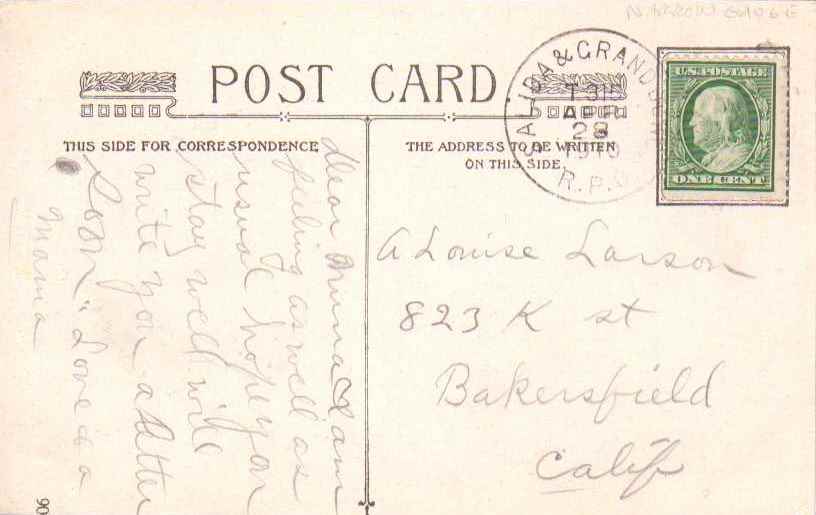 NARROW GAUGE
POST CARD
SALIDA & GRAND JUN
T 315
APR
28
1910
R.P.O.
U.S. POSTAGE
ONE CENT
THIS SIDE FOR CORRESPONDENCE
THE ADDRESS TO BE WRITTEN
ON THIS SIDE.
Dear I am
feeling as well as
usual hope you
stay well will
write you a letter
Soon" Love to a
Mama
A Louise Larson
823 K st
Bakersfield
Calif
90